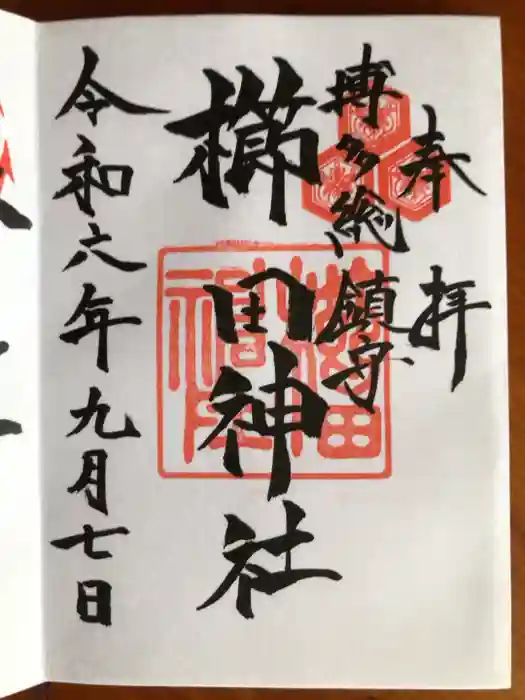 奉拝
博多総鎮守
櫛田神社
令和六年九月七日